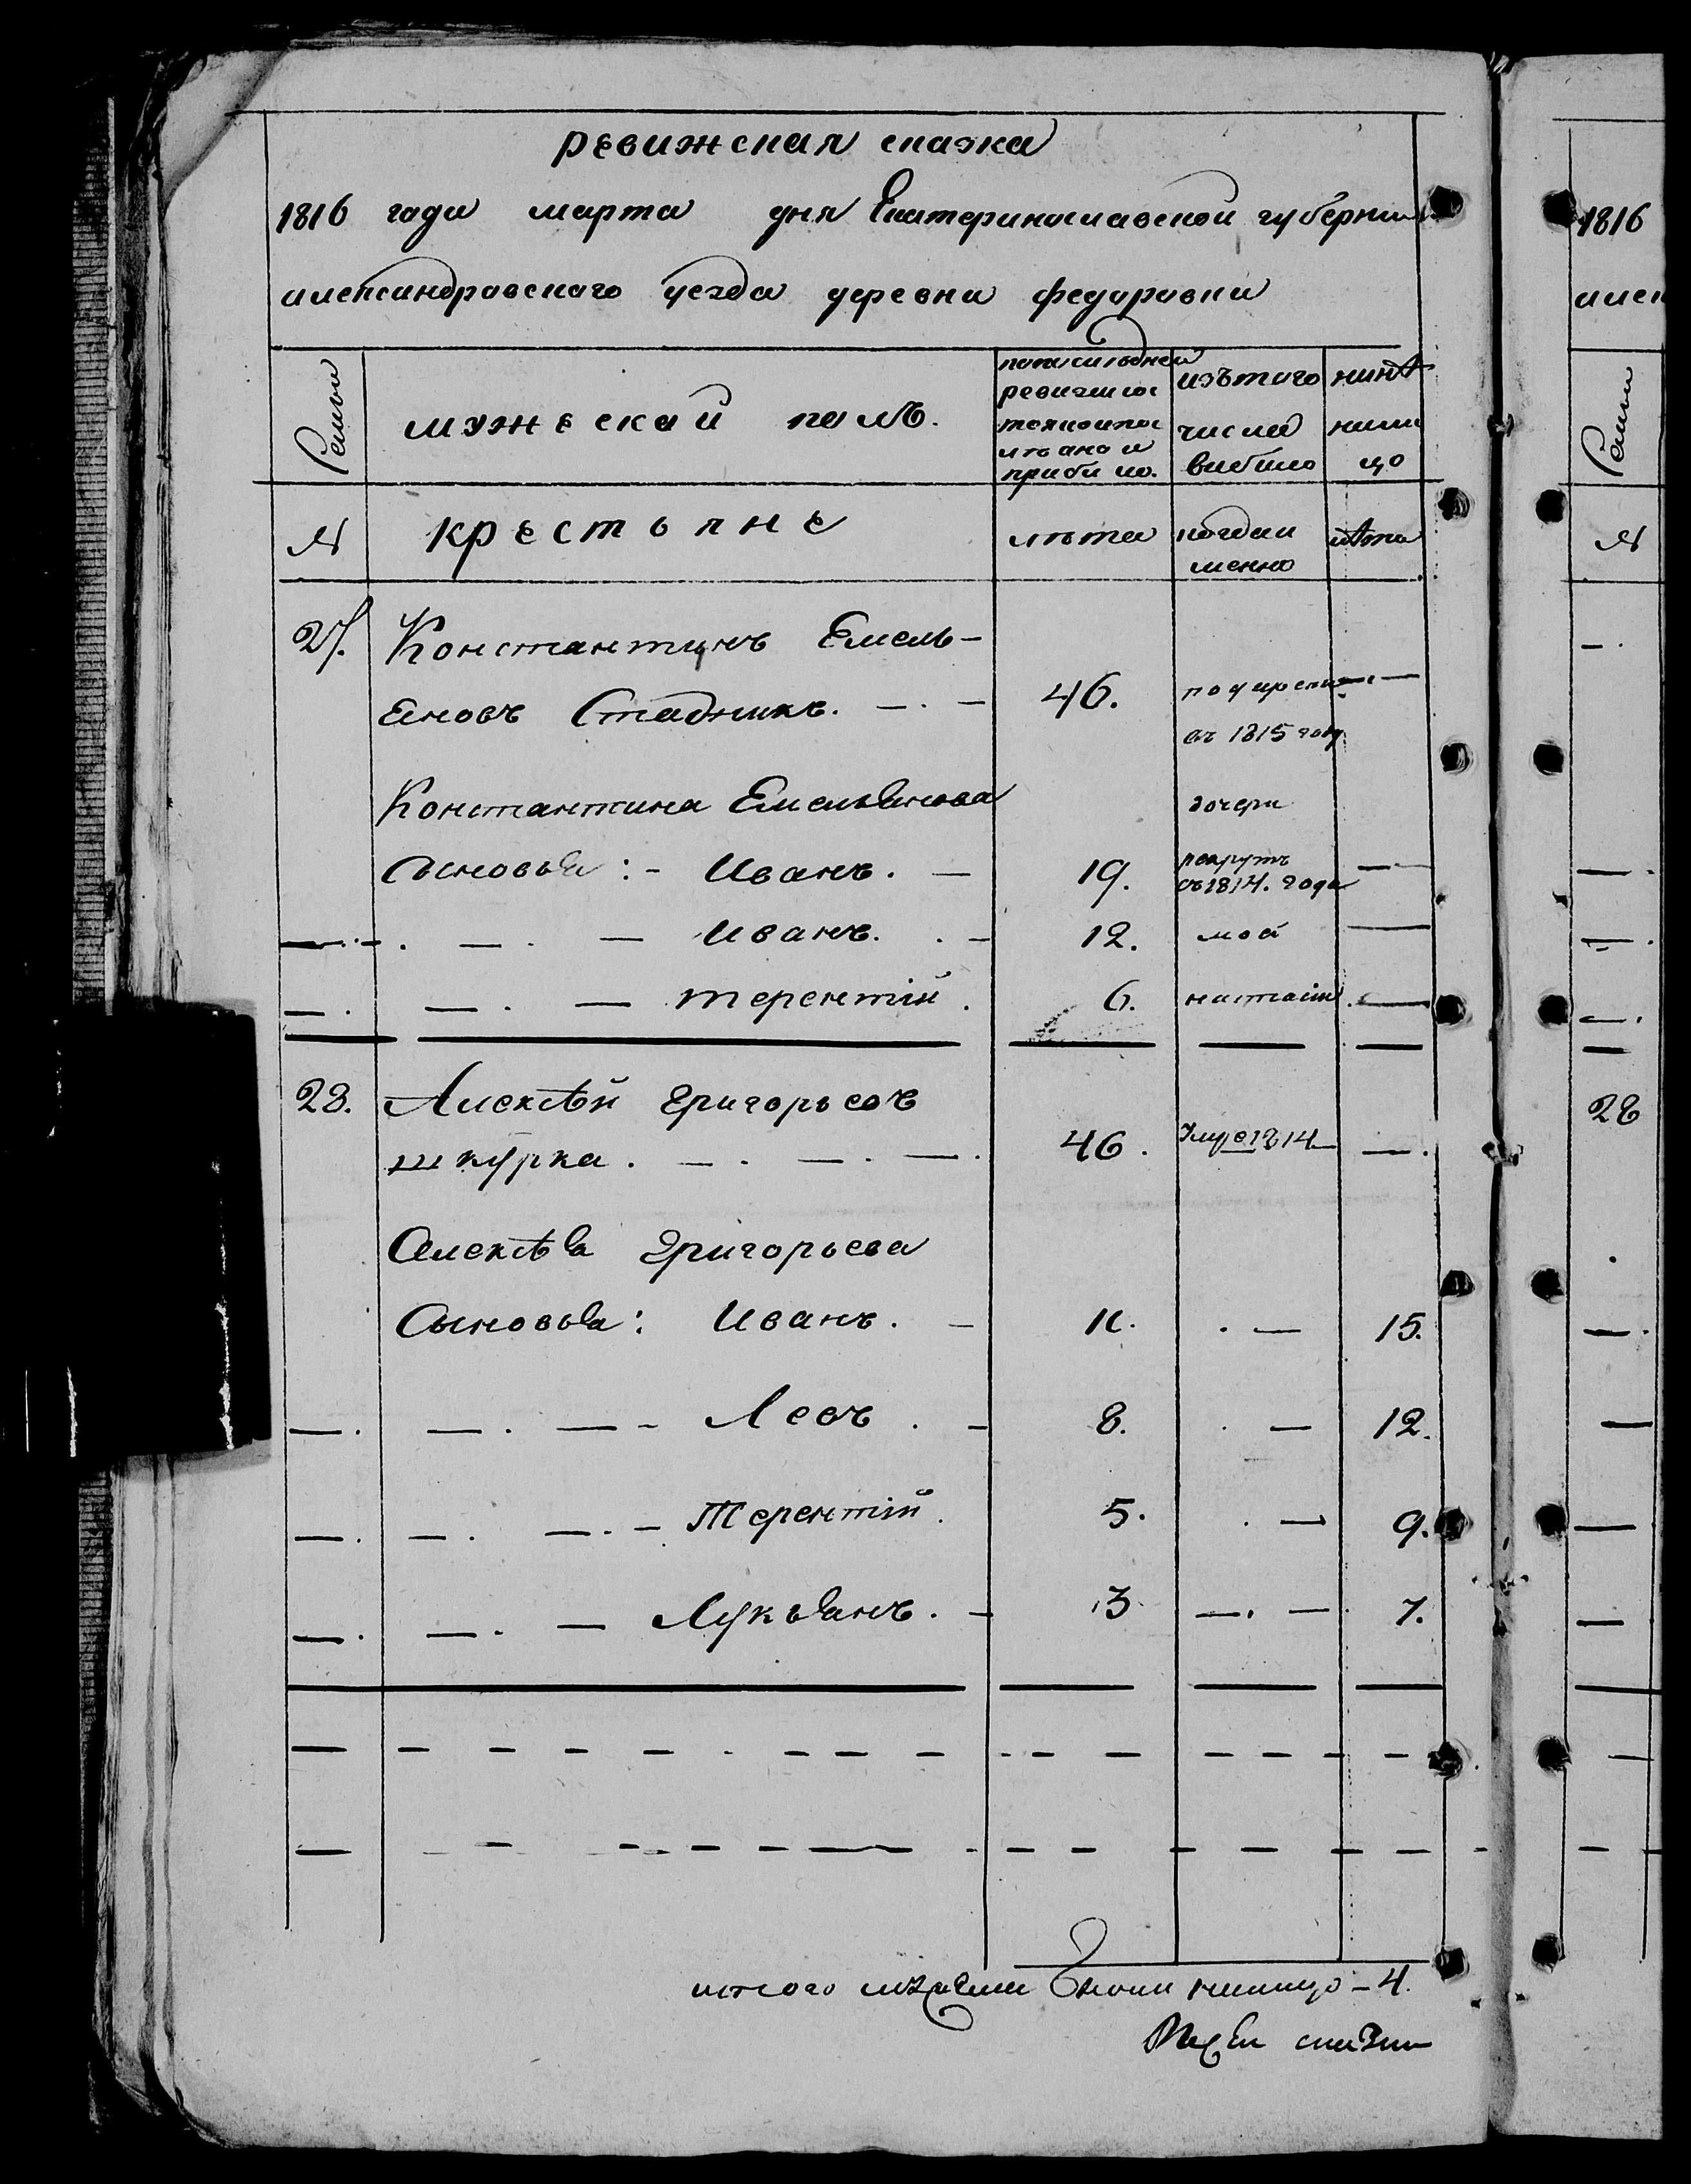 ревижская сказка
1816 года марта дня Екатеринославской губернии
александровского уезда деревни федоровки
Семьи
мужеской полъ.
попоследней
ревизии сос
тояло и по
слъ оно и
прибило.
изътого
числа
вибило
нинѣ
нали
цо
№
крестьяне
лѣта
когда и
менно
лѣта
27.
Константинъ Емель-
яновъ Стадникъ. — . —
46.
въ 1815 году
Константина Емельянова
дочери
сыновья: - Иванъ. —
19.
рекрутъ
съ 1814. года
—
— . — . — Иванъ. . —
12.
—
— . — . — терентій .
6.
—
28.
Алексѣй Григорьевъ
шкурка . — . — . — .
46.
Умре 1814
— .
Алексѣя Григорьева
Сыновья: Иванъ. —
11.
. —
15.
— . — . — - Левъ . —
8.
. —
12.
— . — . — . - Терентій .
5.
. —
9.
— . — . — Лукьянъ . —
3
— . —
7.
итого налицо - 4.
1816
алек
Семьи
№
28